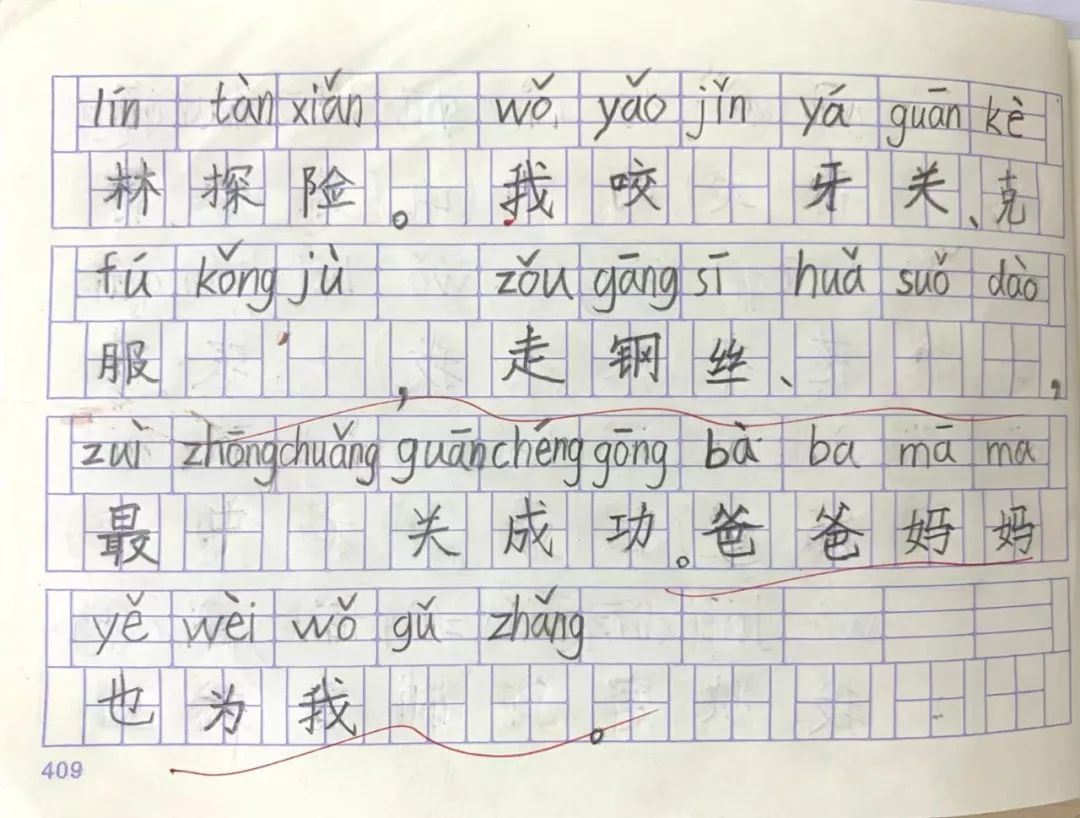 lín tàn xiǎn wǒ yǎo jǐn yá guān kè
林探险。我咬 牙关、克
fú kǒng jù zǒu gāng sī huǎ suǒ dào
服 ,走钢丝、 ,
zuì zhōng chuǎng guān chéng gōng bà ba mā ma
最 关成功。爸爸妈妈
yě wèi wǒ gǔ zhǎng
也为我 。
409